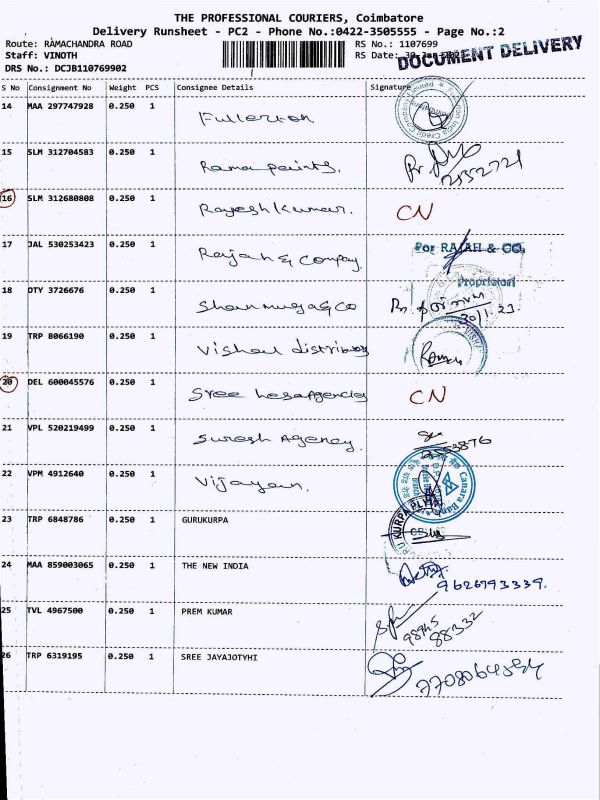 THE PROFESSIONAL COURIERS, Coimbatore
Delivery Runsheet - PC2 - Phone No.:0422-3505555 - Page No.:2
Route: RAMACHANDRA ROAD RS No.: 1107699
Staff: VINOTH RS Date:
DOCUMENT DELIVERY
DRS No.: DCJB110769902
S No Consignment No Weight PCS Consignee Details Signature
14 MAA 297747928 0.250 1 Fullerton
15 SLM 312704583 0.250 1 Rama paints.
16 SLM 312680808 0.250 1 Rajesh Kumar. CN
17 JAL 530253423 0.250 1 Rajah & Company For RAJAH & CO.
Proprietor
18 OTY 3726676 0.250 1 Shanmuga & CO 30/1.23
19 TRP 8066190 0.250 1 Vishal distributors
20 DEL 600045576 0.250 1 Sree Agencies CN
21 VPL 520219499 0.250 1 Suresh Agency.
22 VPM 4912640 0.250 1 Vijayan. Canara Bank
23 TRP 6848786 0.250 1 GURUKURPA
24 MAA 859003065 0.250 1 THE NEW INDIA 9626793339.
25 TVL 4967500 0.250 1 PREM KUMAR 98945
88332
26 TRP 6319195 0.250 1 SREE JAYAJOTYHI